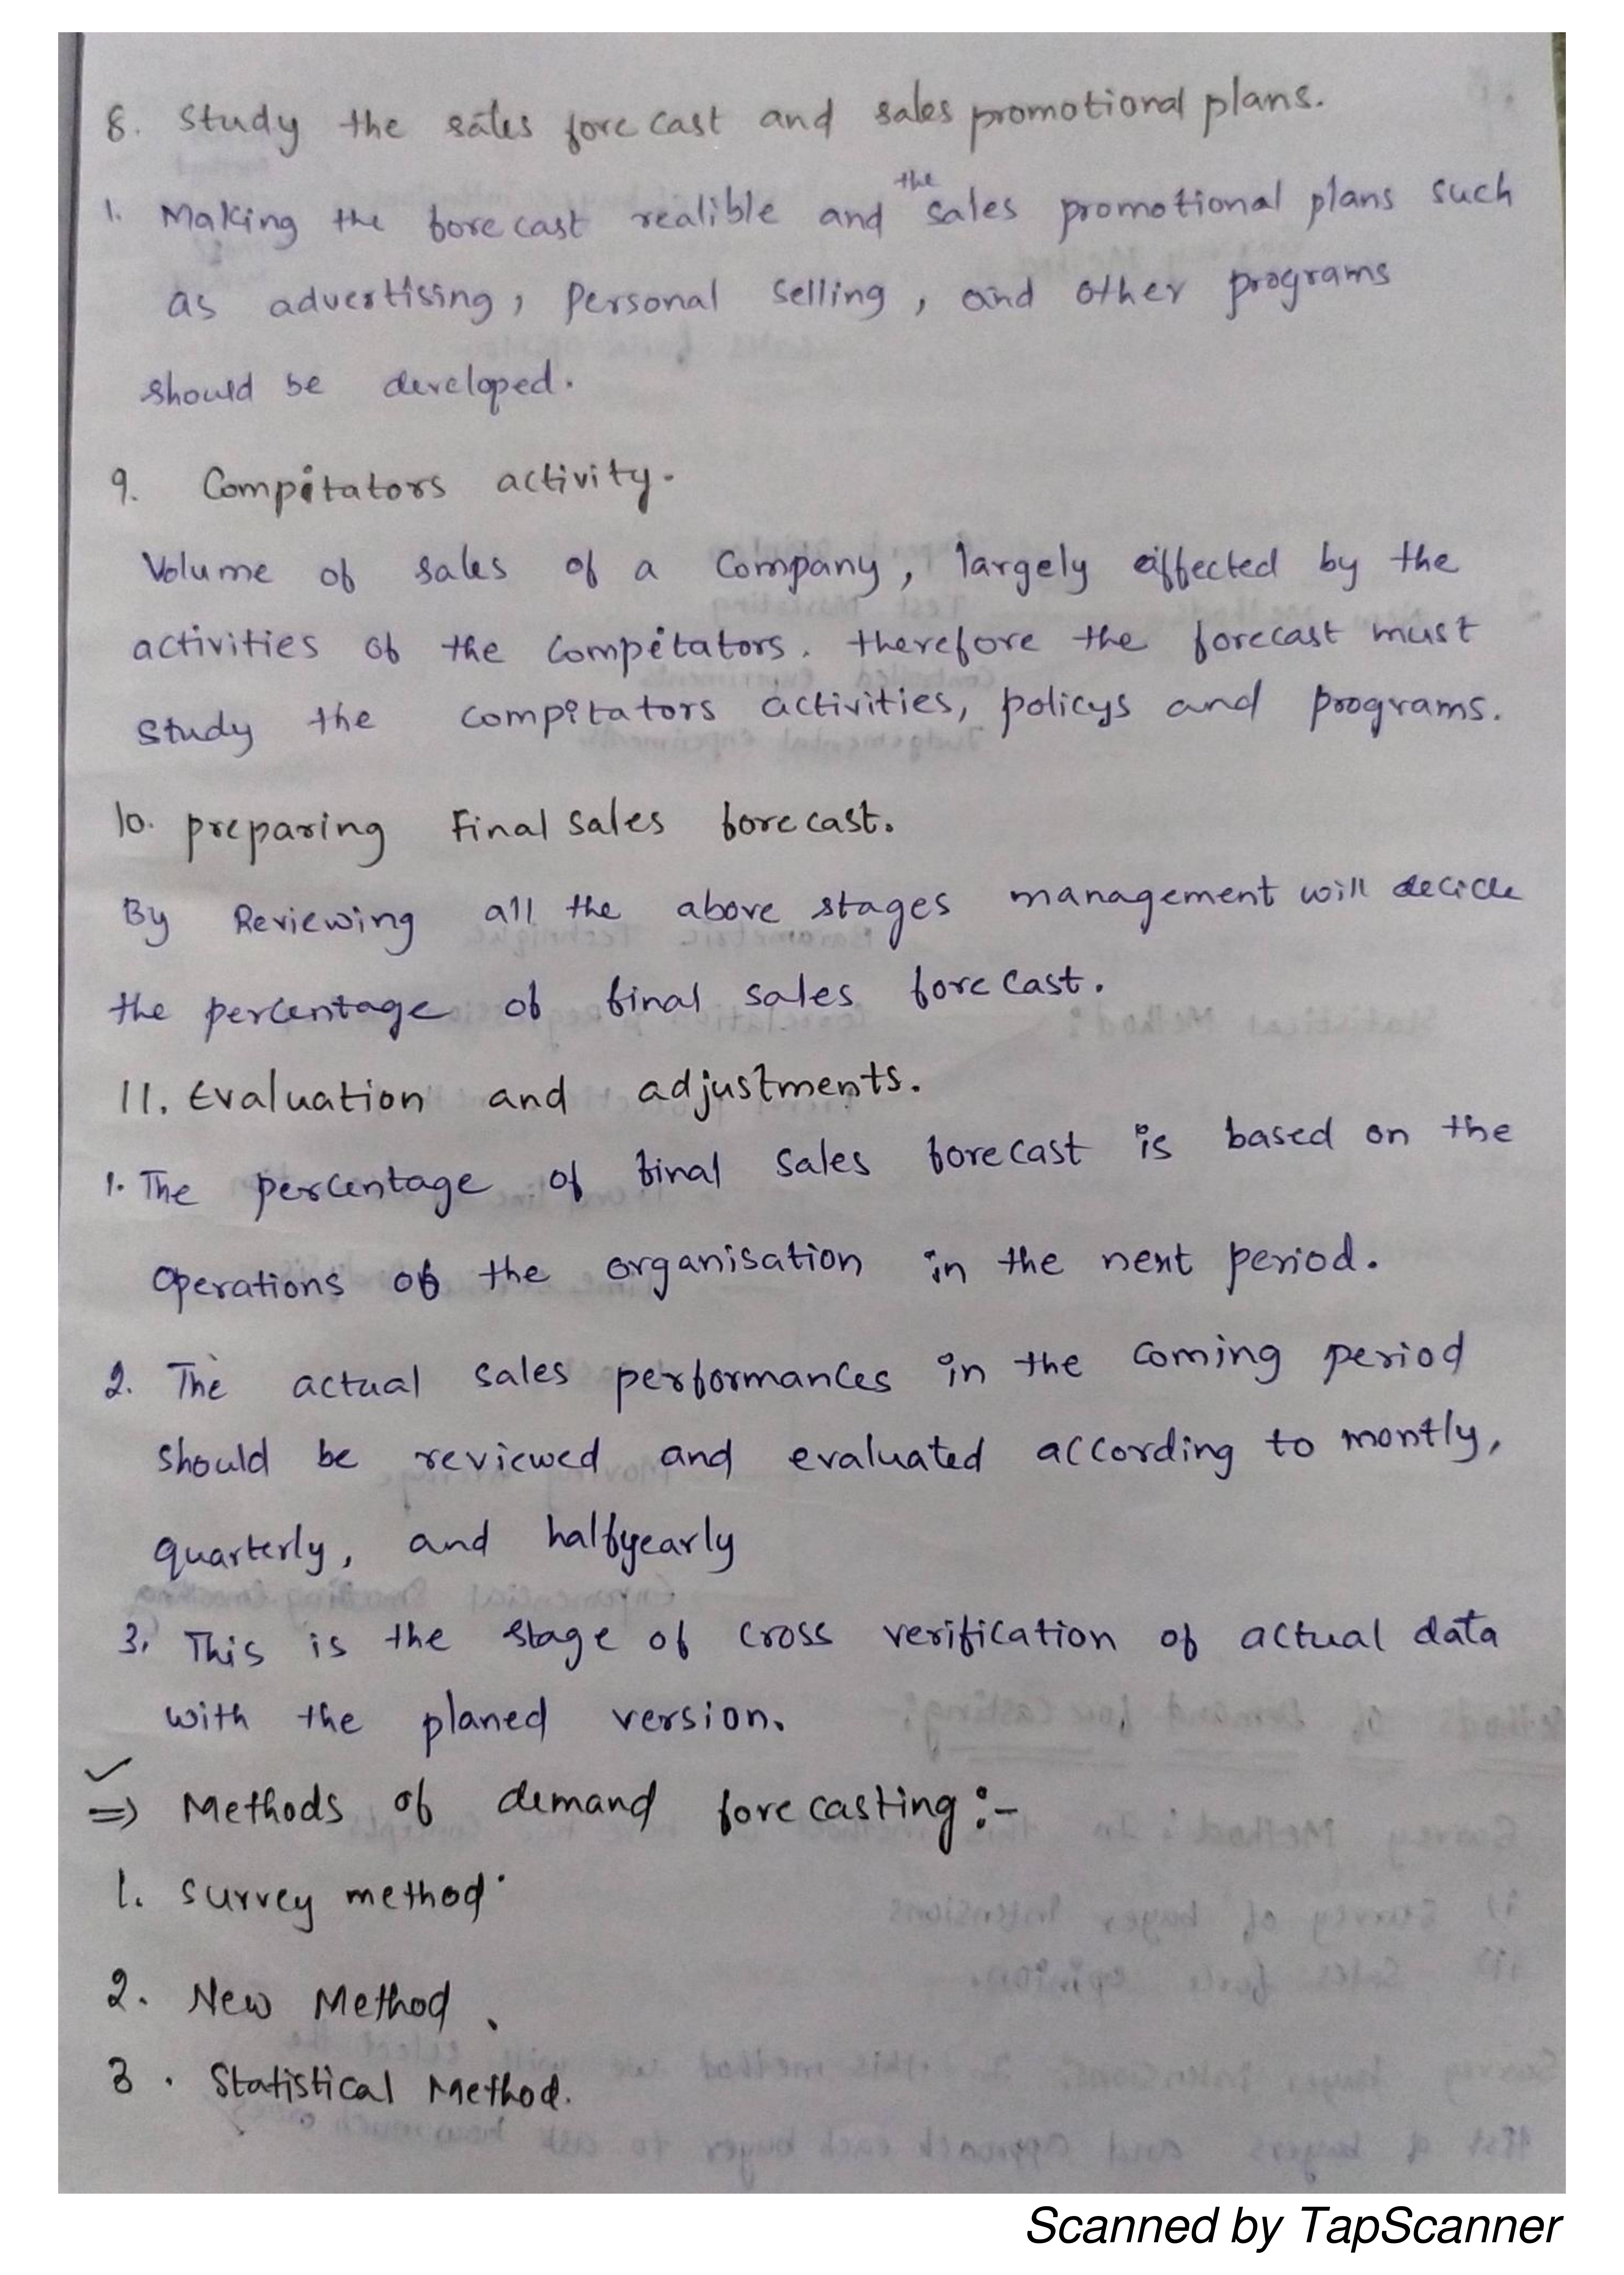 8. Study the sales forecast and sales promotional plans.
1. Making the forecast realible and the sales promotional plans such
as advertising, Personal Selling, and other programs
should be developed.
9. Compitators activity.
Volume of sales of a Company, largely effected by the
activities of the Compitators. therefore the forecast must
study the compitators activities, policys and programs.
10. preparing Final sales forecast.
By Reviewing all the above stages management will decide
the percentage of final sales forecast.
11. Evaluation and adjustments.
1. The percentage of final sales forecast is based on the
Operations of the organisation in the next period.
2. The actual sales performances in the coming period
should be reviewed and evaluated according to montly,
quarterly, and halfyearly
3. This is the stage of cross verification of actual data
with the planed version.
=> Methods of demand forecasting :-
1. survey method
2. New Method.
3. Statistical Method.
Scanned by TapScanner